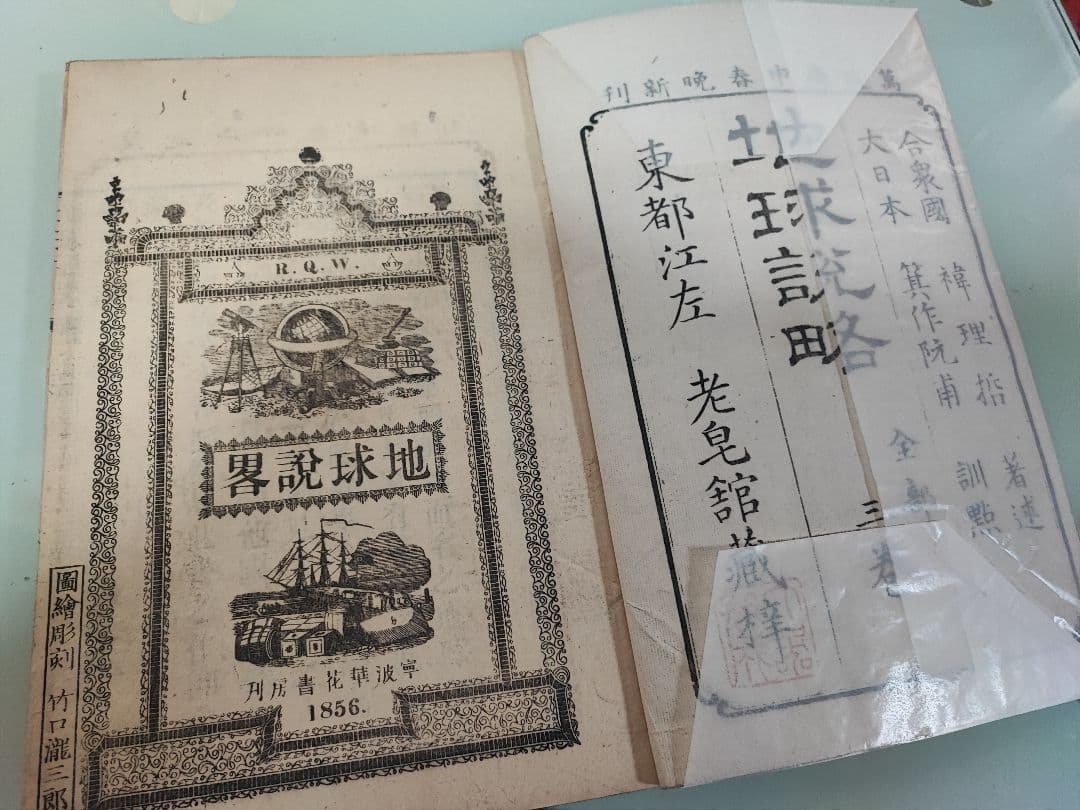 萬 申春晚新刊
合衆國 褘理哲 著述
大日本 箕作阮甫 訓點
地球説略 全部 三卷
東都江左 老皂舘藏梓
R.Q.W.
地球說畧
寧波華花書房刊
1856.
圖繪彫刻 竹口瀧三郎